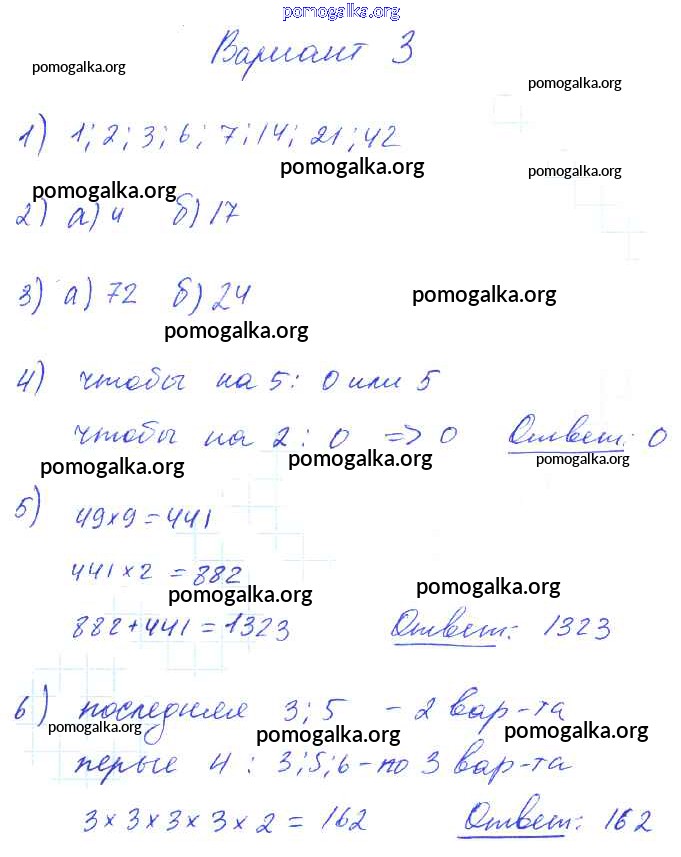 pomogalka.org
Вариант 3
pomogalka.org
pomogalka.org
1) 1; 2; 3; 6; 7; 14; 21; 42
pomogalka.org
pomogalka.org
pomogalka.org
2) а) 4 б) 17
3) а) 72 б) 24
pomogalka.org
pomogalka.org
4) чтобы на 5: 0 или 5
чтобы на 2: 0 => 0 Ответ: 0
pomogalka.org
pomogalka.org
pomogalka.org
5) 49×9=441
441×2=882
pomogalka.org
pomogalka.org
882+441=1323 Ответ: 1323
6) последняя 3; 5 - 2 вар-та
pomogalka.org
pomogalka.org
pomogalka.org
перые 4: 3; 5; 6 - по 3 вар-та
3×3×3×3×2=162 Ответ: 162